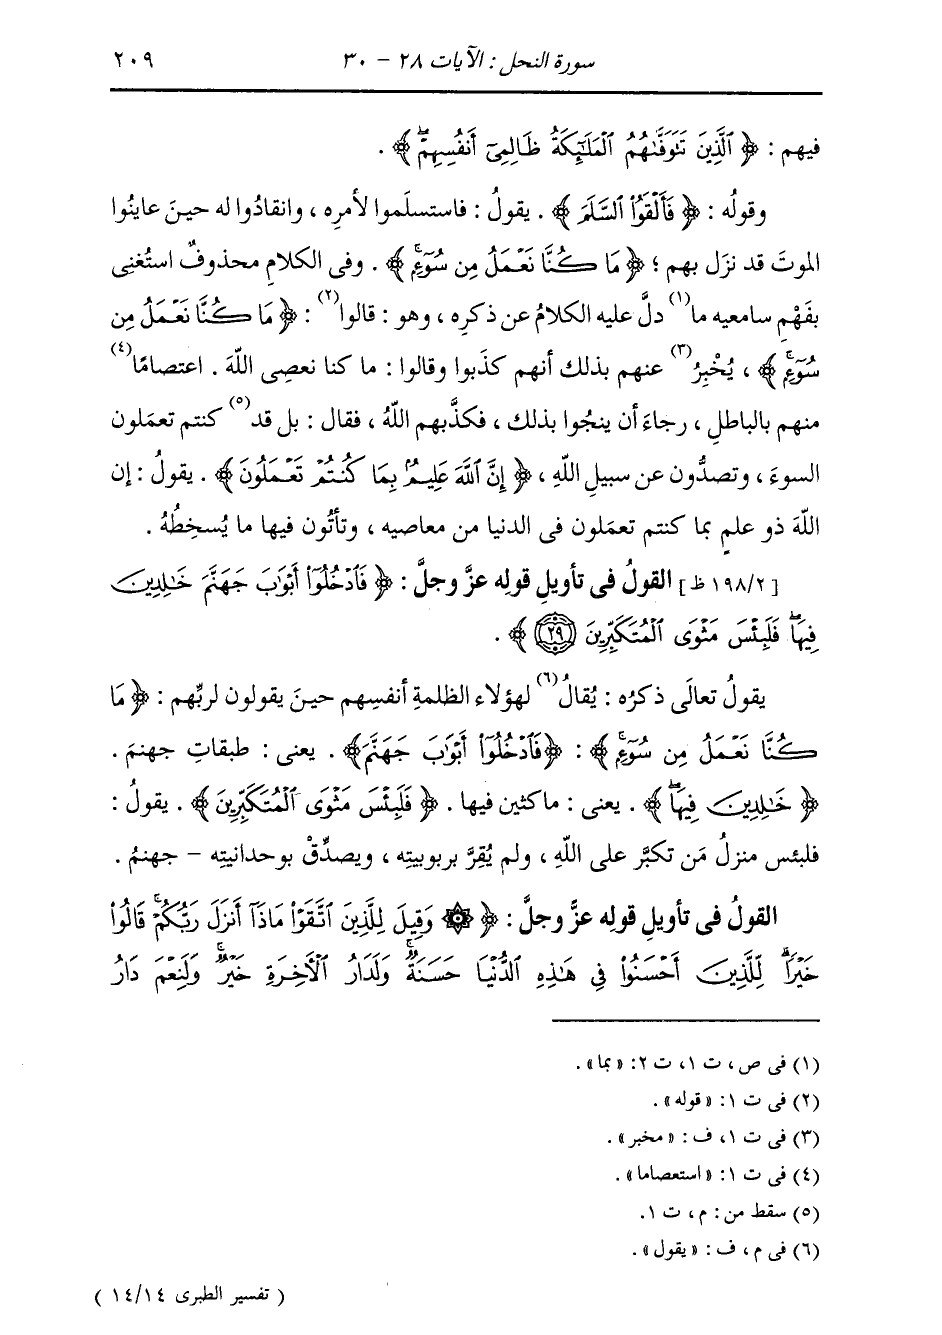 سورة النحل : الآيات ٢٨ - ٣٠ ٢٠٩
فيهم : ﴿ الَّذِينَ تَتَوَفَّاهُمُ الْمَلَائِكَةُ ظَالِمِي أَنفُسِهِمْ ﴾ .
وقولُه : ﴿ فَأَلْقَوُا السَّلَمَ ﴾ . يقولُ : فاستسلَموا لأمرِه ، وانقادُوا له حينَ عاينُوا
الموتَ قد نزَل بهم ؛ ﴿ مَا كُنَّا نَعْمَلُ مِن سُوءٍ ﴾ . وفى الكلامِ محذوفٌ استُغنِى
بفَهْمِ سامعيه ما(١) دلَّ عليه الكلامُ عن ذكرِه ، وهو : قالوا(٢) : ﴿ مَا كُنَّا نَعْمَلُ مِن
سُوءٍ ﴾ ، يُخْبِرُ(٣) عنهم بذلك أنهم كذَبوا وقالوا : ما كنا نعصِى اللهَ . اعتصامًا(٤)
منهم بالباطلِ ، رجاءَ أن ينجُوا بذلك ، فكذَّبهم اللهُ ، فقال : بل قد(٥) كنتم تعمَلون
السوءَ ، وتصدُّون عن سبيلِ اللهِ ، ﴿ إِنَّ اللَّهَ عَلِيمٌ بِمَا كُنتُمْ تَعْمَلُونَ ﴾ . يقولُ : إن
اللهَ ذو علمٍ بما كنتم تعمَلون فى الدنيا من معاصيه ، وتأتُون فيها ما يُسخِطُهُ .
[ ١٩٨/٢ ظ ] القولُ فى تأويلِ قولِه عزَّ وجلَّ : ﴿ فَادْخُلُوا أَبْوَابَ جَهَنَّمَ خَالِدِينَ
فِيهَا فَلَبِئْسَ مَثْوَى الْمُتَكَبِّرِينَ (٢٩) ﴾ .
يقولُ تعالَى ذكرُه : يُقالُ(٦) لهؤلاء الظلمةِ أنفسِهم حينَ يقولون لربِّهم : ﴿ مَا
كُنَّا نَعْمَلُ مِن سُوءٍ ﴾ : ﴿ فَادْخُلُوا أَبْوَابَ جَهَنَّمَ ﴾ . يعنى : طبقاتِ جهنمَ .
﴿ خَالِدِينَ فِيهَا ﴾ . يعنى : ماكثين فيها . ﴿ فَلَبِئْسَ مَثْوَى الْمُتَكَبِّرِينَ ﴾ . يقولُ :
فلبئس منزلُ مَن تكبَّر على اللهِ ، ولم يُقِرَّ بربوبيتِه ، ويصدِّقْ بوحدانيتِه - جهنمُ .
القولُ فى تأويلِ قولِه عزَّ وجلَّ : ﴿ ۞ وَقِيلَ لِلَّذِينَ اتَّقَوْا مَاذَا أَنزَلَ رَبُّكُمْ قَالُوا
خَيْرًا لِّلَّذِينَ أَحْسَنُوا فِي هَٰذِهِ الدُّنْيَا حَسَنَةٌ وَلَدَارُ الْآخِرَةِ خَيْرٌ وَلَنِعْمَ دَارُ
(١) فى ص ، ت ١، ت ٢: « بما » .
(٢) فى ت ١: « قوله » .
(٣) فى ت ١، ف : « مخبر » .
(٤) فى ت ١: « استعصاما » .
(٥) سقط من : م ، ت ١.
(٦) فى م ، ف : « يقول » .
( تفسير الطبرى ١٤/١٤ )